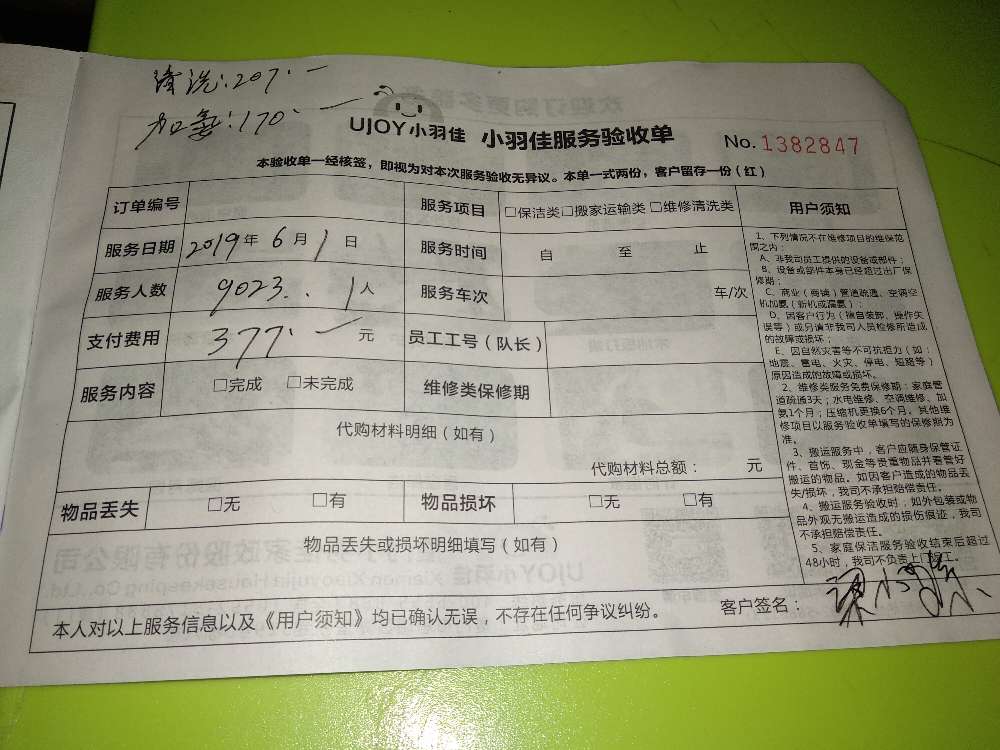 清洗:207.一
加氨:170.一
UJOY小羽佳 小羽佳服务验收单 No.1382847
本验收单一经核签，即视为对本次服务验收无异议。本单一式两份，客户留存一份（红）
订单编号 服务项目 □保洁类□搬家运输类□维修清洗类 用户须知
服务日期 2019年6月1日 服务时间 自 至 止
服务人数 9023..1人 服务车次 车/次
支付费用 377.一元 员工工号（队长）
服务内容 □完成 □未完成 维修类保修期
代购材料明细（如有）
代购材料总额： 元
物品丢失 □无 □有 物品损坏 □无 □有
物品丢失或损坏明细填写（如有）
1、下列情况不在维修项目的维保范
围之内：
A、非我司员工提供的设备或部件；
B、设备或部件本身已经超过出厂保
修期；
C、商业（商铺）管道疏通、空调空
机加氨（新机或漏氨）；
D、因客户行为（擅自装卸、操作失
误等）或另请非我司人员检修所造成
的故障或损坏；
E、因自然灾害等不可抗担力（如：
地震、雷电、火灾、停电、短路等）
原因造成的故障或损坏。
2、维修类服务免费保修期：家庭管
道疏通3天；水电维修、空调维修、加
氨1个月；压缩机更换6个月。其他维
修项目以服务验收单填写的保修期为
准。
3、搬运服务中，客户应随身保管证
件、首饰、现金等贵重物品并看管好
搬运的物品。如因客户造成的物品丢
失/损坏，我司不承担赔偿责任。
4、搬运服务验收时，如外包装或物
品外观无搬运造成的损伤痕迹，我司
不承担赔偿责任。
5、家庭保洁服务验收结束后超过
48小时，我司不负责上门返工。
本人对以上服务信息以及《用户须知》均已确认无误，不存在任何争议纠纷。 客户签名：